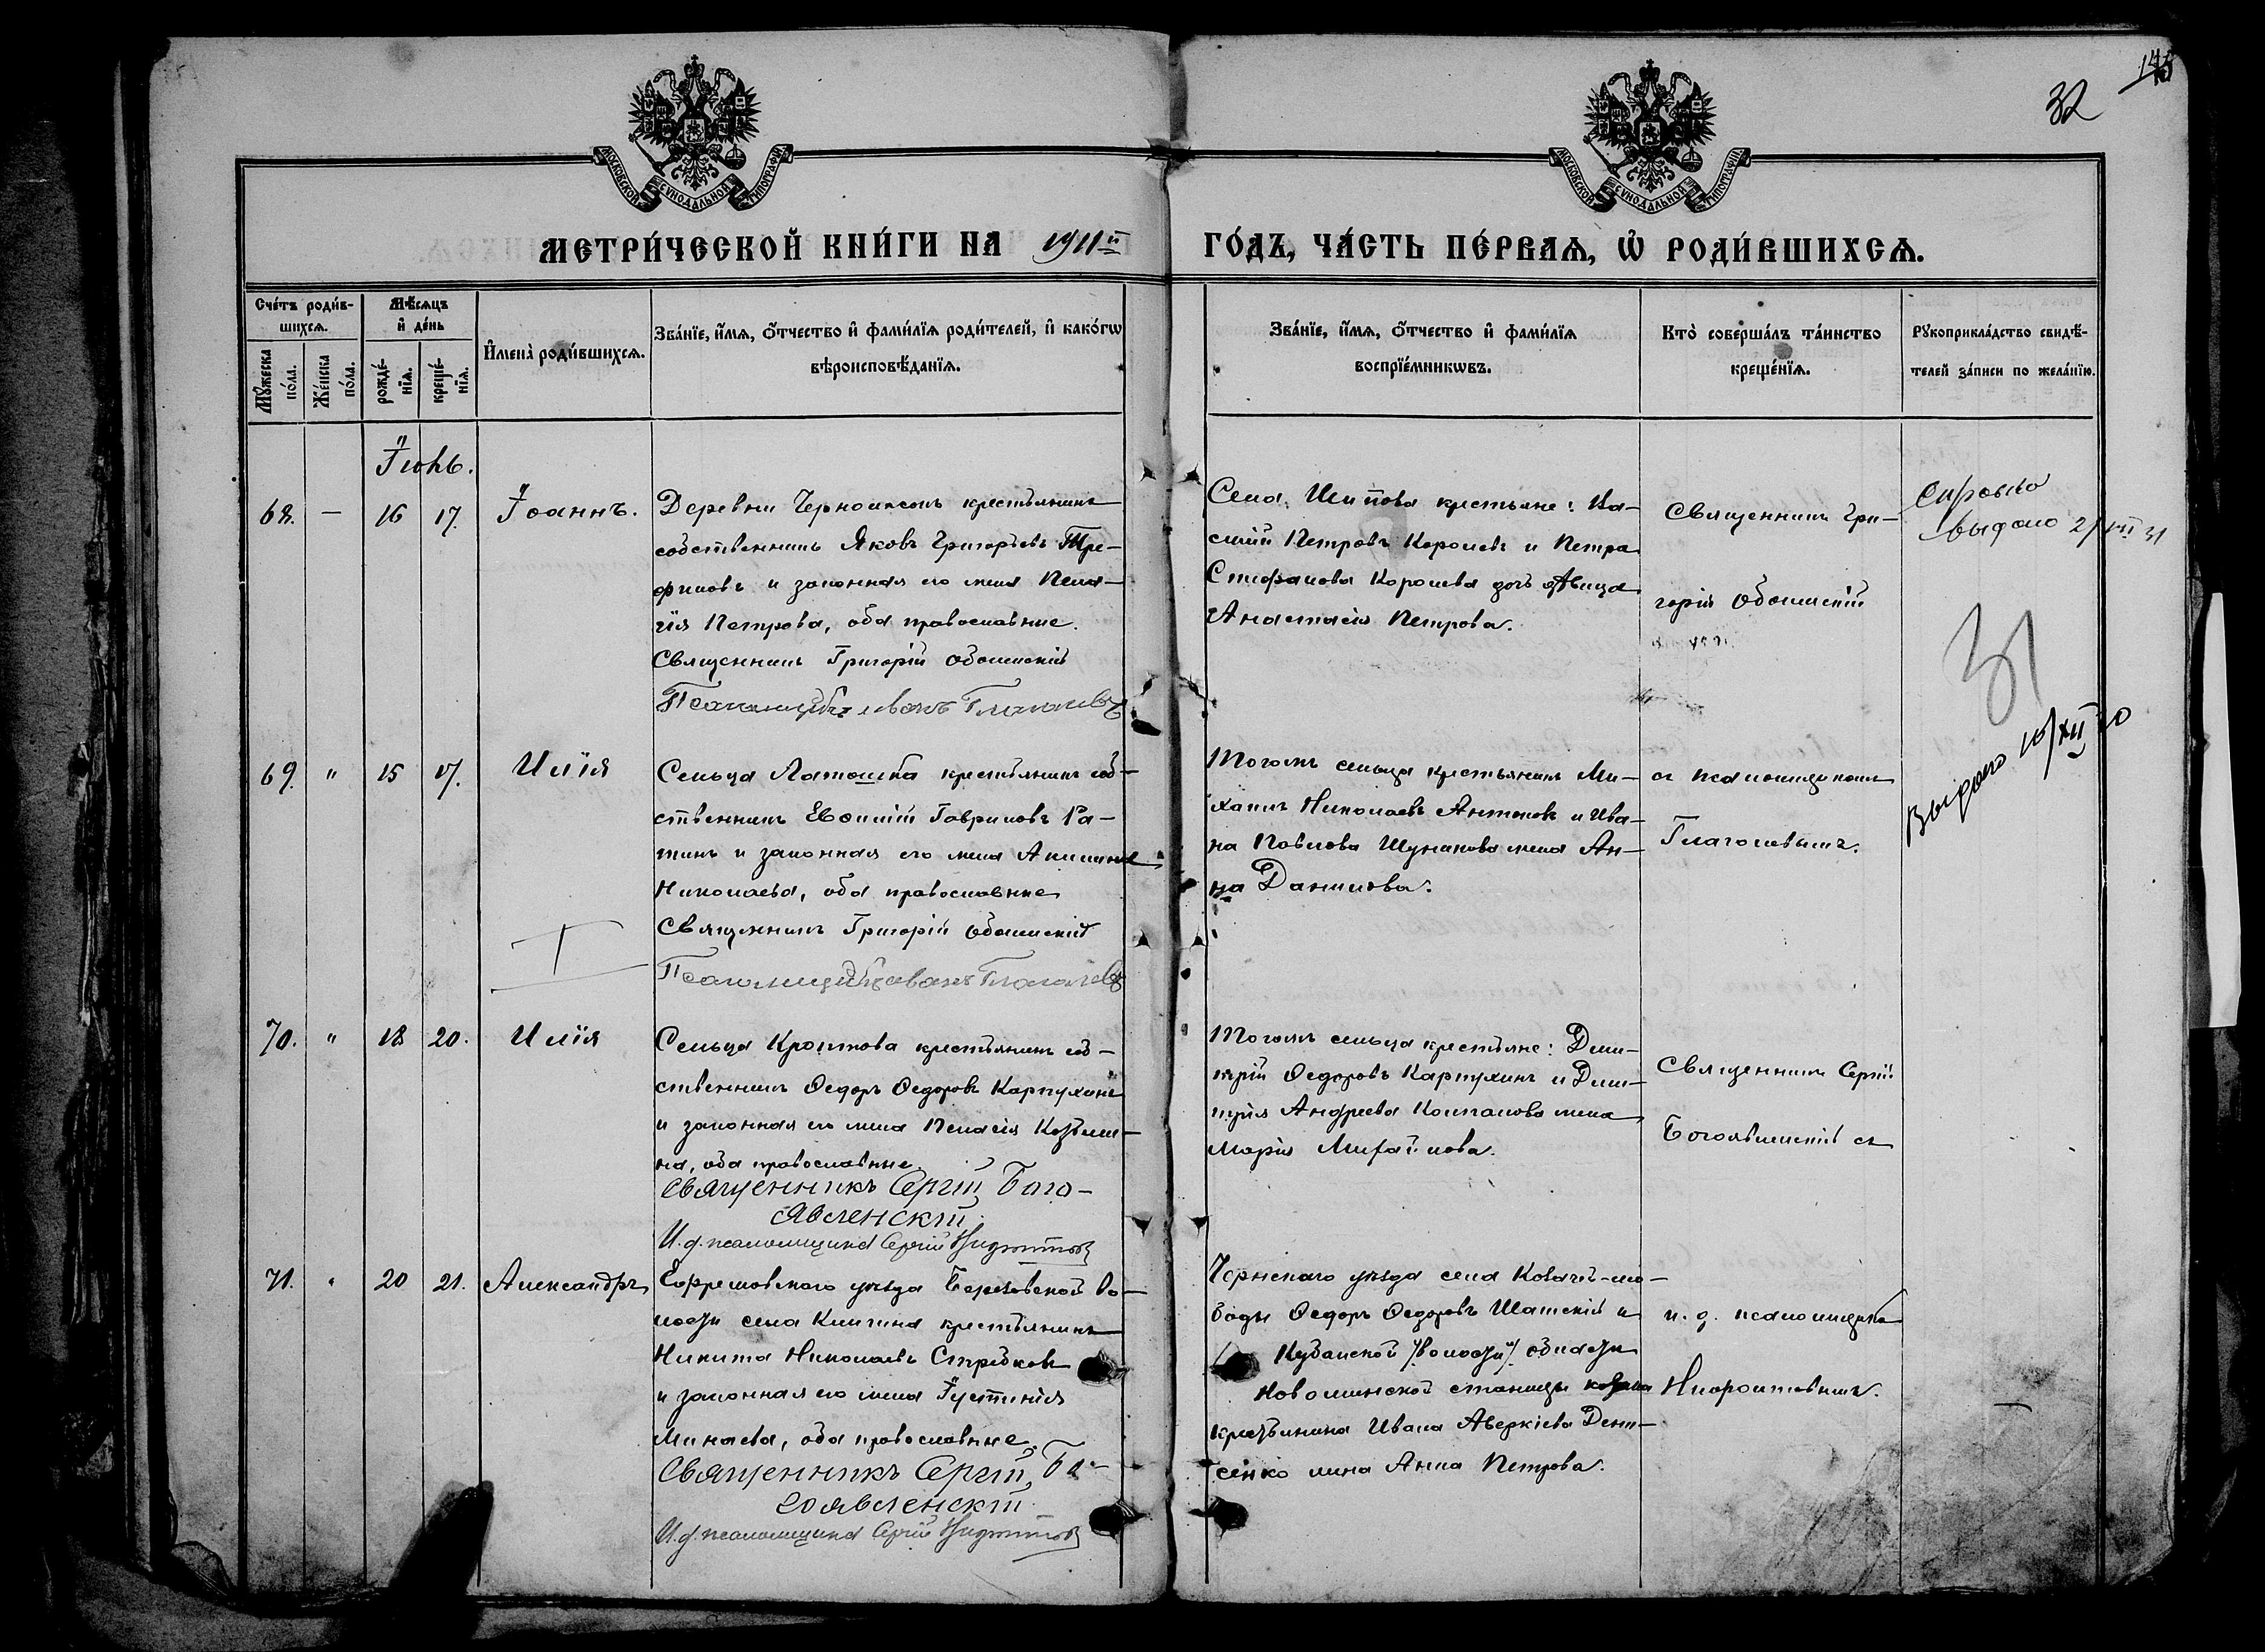 32
МОСКОВСКОЙ СѴНОДАЛЬНОЙ ТИПОГРАФІИ
МОСКОВСКОЙ СѴНОДАЛЬНОЙ ТИПОГРАФІИ
МЕТРИ́ЧЕСКОЙ КНИ́ГИ НА 1911й ГО́ДЪ, ЧА́СТЬ ПЕ́РВАѦ, Ѡ РОДИ́ВШИХСѦ.
Сче́тъ роди́в-
шихсѧ.
Мꙋжеска
по́ла.
Же́нска
по́ла.
Мѣ́сѧцъ
и҆ де́нь
рожде́-
нїѧ.
креще́-
нїѧ.
И҆мена̀ роди́вшихсѧ.
Зва́нїе, и҆́мѧ, ѻ҆́тчество и҆ фами́лїѧ роди́телей, и҆ како́гѡ
вѣроисповѣ́данїѧ.
Зва́нїе, и҆́мѧ, ѻ҆́тчество и҆ фами́лїѧ
воспрїе́мникѡвъ.
Кто̀ соверша́лъ та́инство
креще́нїѧ.
Рꙋкоприкла́дство свидѣ́-
телей за́писи по жела́нїю.
Іюнь.
68. — 16 17. Іоаннъ.
крестьянинъ
собственникъ Яковъ Григорьевъ Тре-
филовъ и законная его жена Пела-
гія Петрова, оба православные.
Священникъ Григорій
Псаломщикъ Иванъ Глаголевъ
Села Шипова крестьяне: Ва-
силій Петровъ Королевъ и Петра
Стефанова Королева дочь дѣвица
Анастасія Петрова.
Священникъ Гри-
горій
выдано
31
69. " 15 17. Илія
Сельца крестьянинъ соб-
ственникъ Гавриловъ Ра-
тинъ и законная его жена Акилина
Николаева, оба православные
Священникъ Григорій
Псаломщикъ Иванъ Глаголевъ
Тогожъ сельца крестьянинъ Ми-
хаилъ Николаевъ Антоновъ и Ива-
на Павлова жена Ан-
на Данилова.
съ псаломщикомъ
Глаголевымъ.
Выдано 16/XII 20
70. " 18 20. Илія
Сельца Кроткова крестьянинъ соб-
ственникъ Ѳедоръ Ѳедоровъ Карпухинъ
и законная его жена Пелагія Козьми-
на, оба православные.
Священникъ Сергій Бого-
явленскій
И. д. псаломщика Сергій
Тогожъ сельца крестьяне: Дими-
трій Ѳедоровъ Карпухинъ и Дими-
трія Андреева Колпакова жена
Марія Михаилова.
Священникъ Сергій
Богоявленскій съ
71. " 20 21. Александръ
Ефремовскаго уѣзда Березовской во-
лости села крестьянинъ
Никита Николаевъ
и законная его жена Іустинія
Минаева, оба православные.
Священникъ Сергій Бо-
гоявленскій
И. д. псаломщика Сергій
Чернскаго уѣзда села Козачей-сло-
боды Ѳедоръ Ѳедоровъ Шатскій и
Кубанской /волости/ области
Новоминской станицы
крестьянина Ивана Аверкіева Дени-
сенко жена Анна Петрова.
и. д. псаломщика